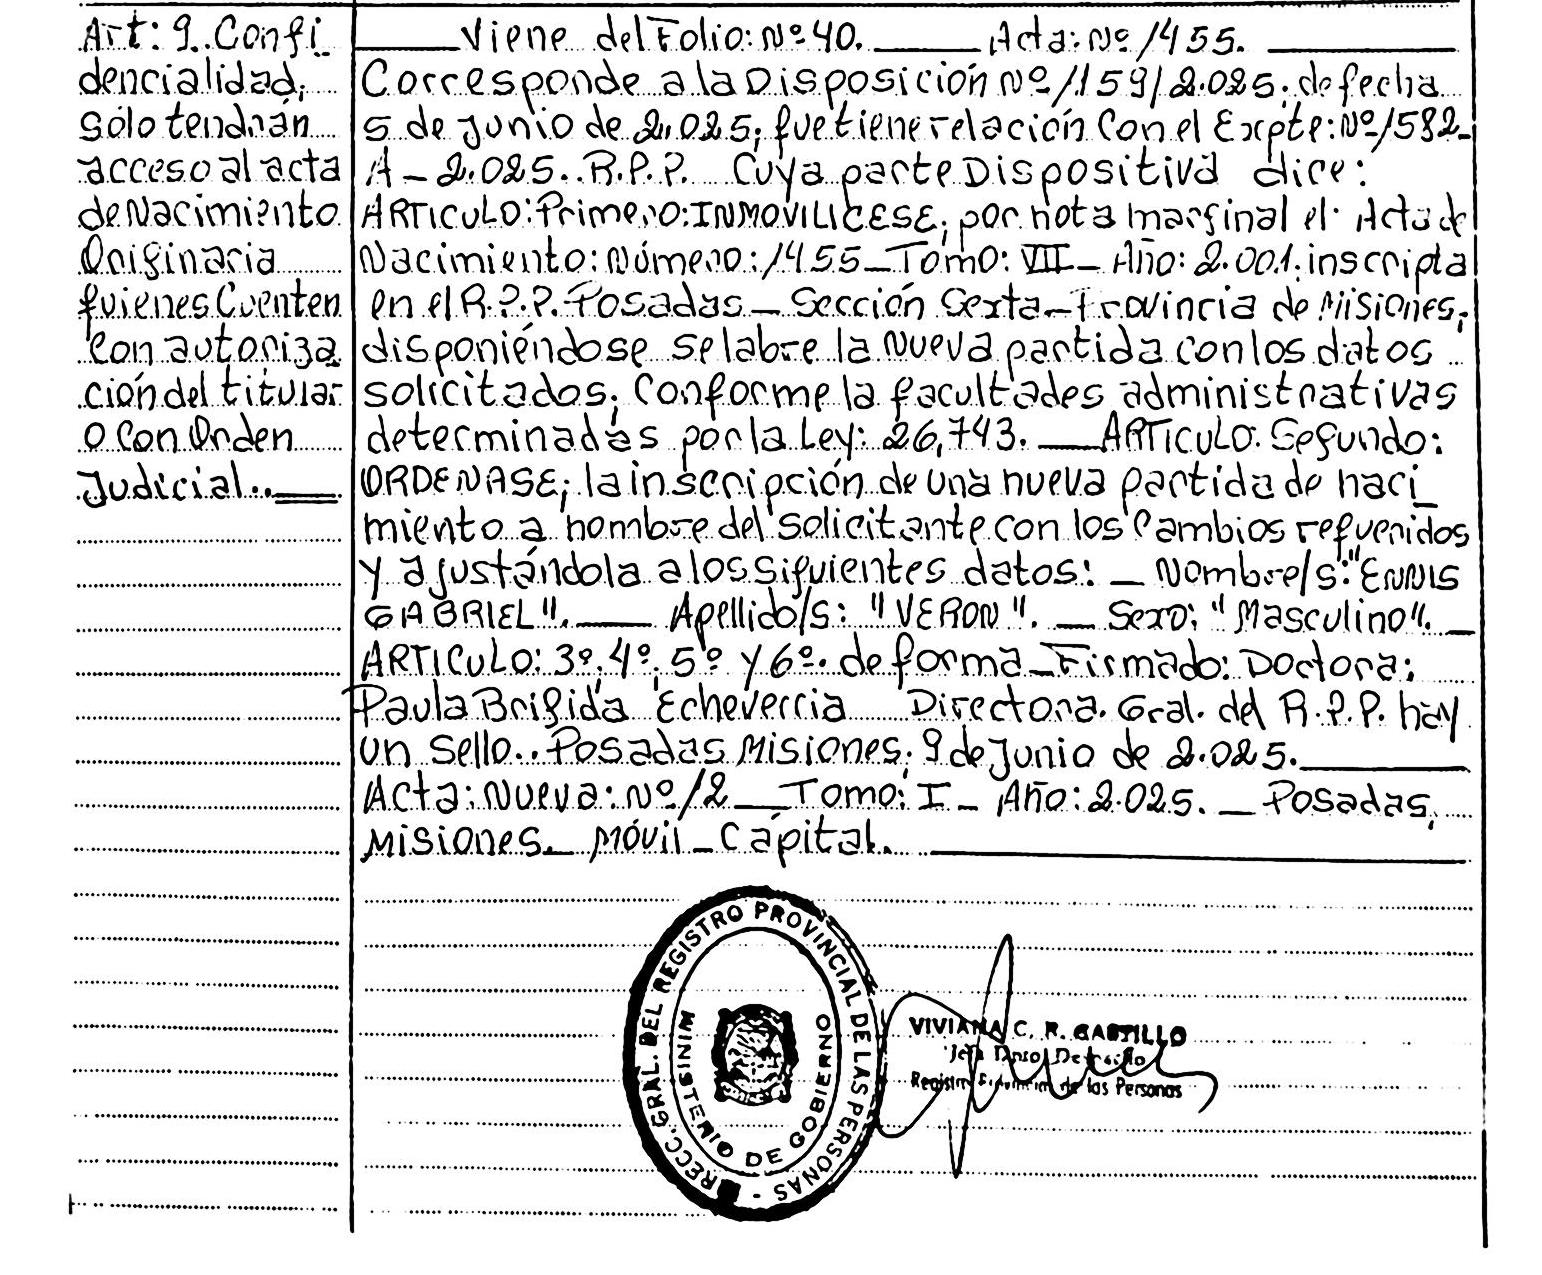 Art: 9. Confi_
dencialidad;
sólo tendrán
acceso al acta
de Nacimiento
Originaria
quienes Cuenten
con autoriza
ción del titular
o con Orden
Judicial..
Viene del Folio: Nº 40. Acta: Nº 1455.
Corresponde a la Disposición Nº 1159/2.025; de fecha
5 de Junio de 2.025; que tiene relación con el Expte: Nº 1582-
A - 2.025. R.P.P. Cuya parte Dispositiva dice:
ARTICULO: Primero: INMOVILICESE, por nota marginal el Acta de
Nacimiento: Número: 1455 - Tomo: VII - Año: 2.001. inscripta
en el R.P.P. Posadas - Sección Sexta - Provincia de Misiones;
disponiéndose se labre la Nueva partida con los datos
solicitados; Conforme la facultades administrativas
determinadas por la Ley: 26,743. ARTICULO. Segundo:
ORDENASE; la inscripción de una nueva partida de naci_
miento a nombre del solicitante con los Cambios requeridos
y ajustándola a los siguientes datos: - Nombre/s: "ENNIS
GABRIEL". Apellido/s: "VERON". - Sexo: "Masculino". -
ARTICULO: 3º, 4º, 5º y 6º. de forma - Firmado: Doctora:
Paula Brigida Echeverria Directora. Gral. del R.P.P. hay
un Sello.. Posadas Misiones; 9 de Junio de 2.025.
Acta: Nueva: Nº 12 - Tomo: I - Año: 2.025. - Posadas,
Misiones. Móvil - Cápital.
RECC. GRAL. DEL REGISTRO PROVINCIAL DE LAS PERSONAS -
MINISTERIO DE GOBIERNO
VIVIANA C. R. CASTILLO
Jefa Dpto
de las Personas